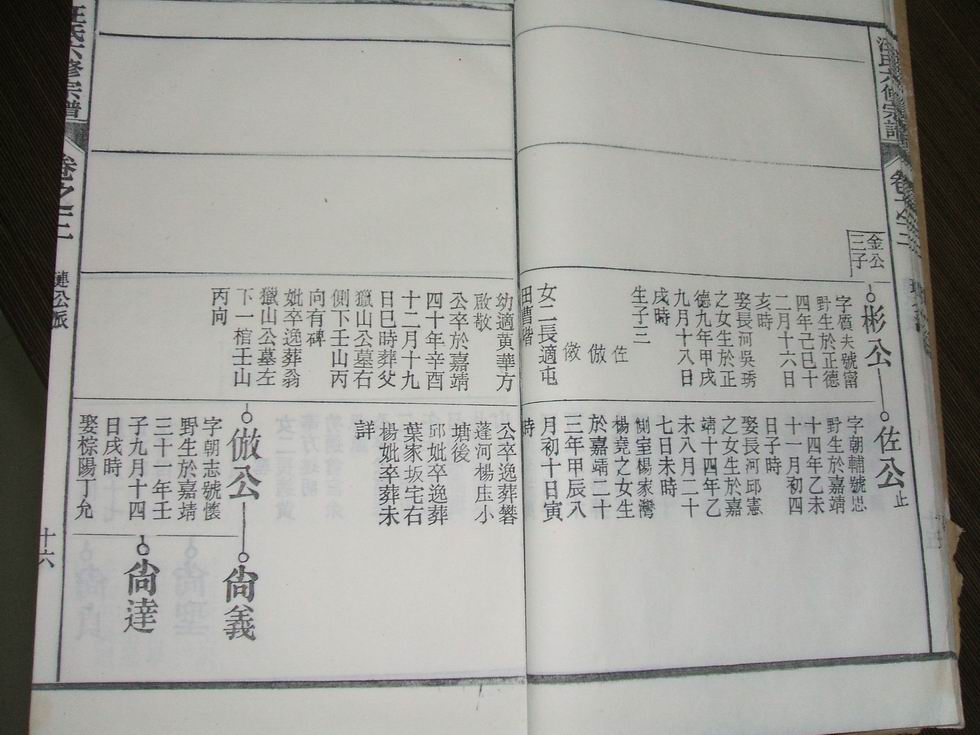 汪氏六修宗譜
卷之二
金公
三子
彬公
字質夫號甯
野生於正德
四年己巳十
二月十六日
亥時
娶長河吳琇
之女生於正
德九年甲戌
九月十八日
戌時
生子三
佐
倣
徽
女二長適屯
田曹楷
幼適黃華方
啟敬
公卒於嘉靖
四十年辛酉
十二月十九
日巳時葬父
獵山公墓右
側下壬山丙
向有碑
妣卒逸葬翁
獵山公墓左
下一棺壬山
丙向
佐公
止
字朝輔號思
野生於嘉靖
十四年乙未
十一月初四
日子時
娶長河邱憲
之女生於嘉
靖十四年乙
未八月二十
七日未時
側室楊家灣
楊堯之女生
於嘉靖二十
三年甲辰八
月初十日寅
時
公卒逸葬礬
蓬河楊庄小
塘後
邱妣卒逸葬
葉家坂宅右
楊妣卒葬未
詳
倣公
字朝志號懷
野生於嘉靖
三十一年壬
子九月十四
日戌時
娶棕陽丁允
尙義
尙達
汪氏六修宗譜
卷之二
璉公派
十六